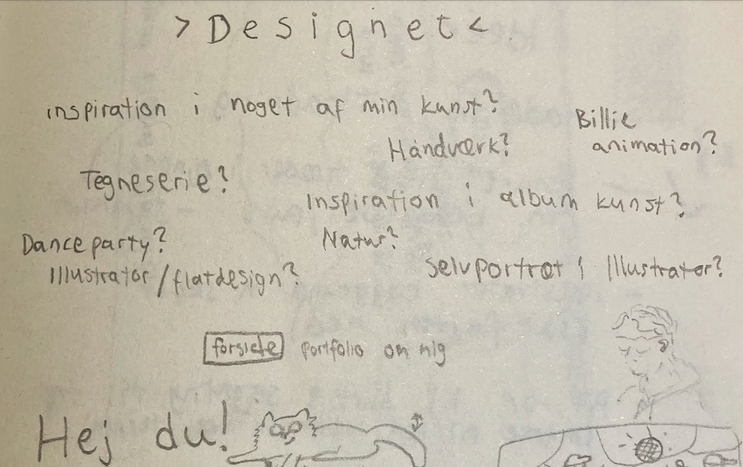 > Designet <
inspiration i noget af min kunst?
Billie animation?
Håndværk?
Tegneserie?
Inspiration i album kunst?
Danceparty?
Natur?
Illustrator/flatdesign?
Selvportræt i Illustrator?
forside portfolio om mig
Hej du!